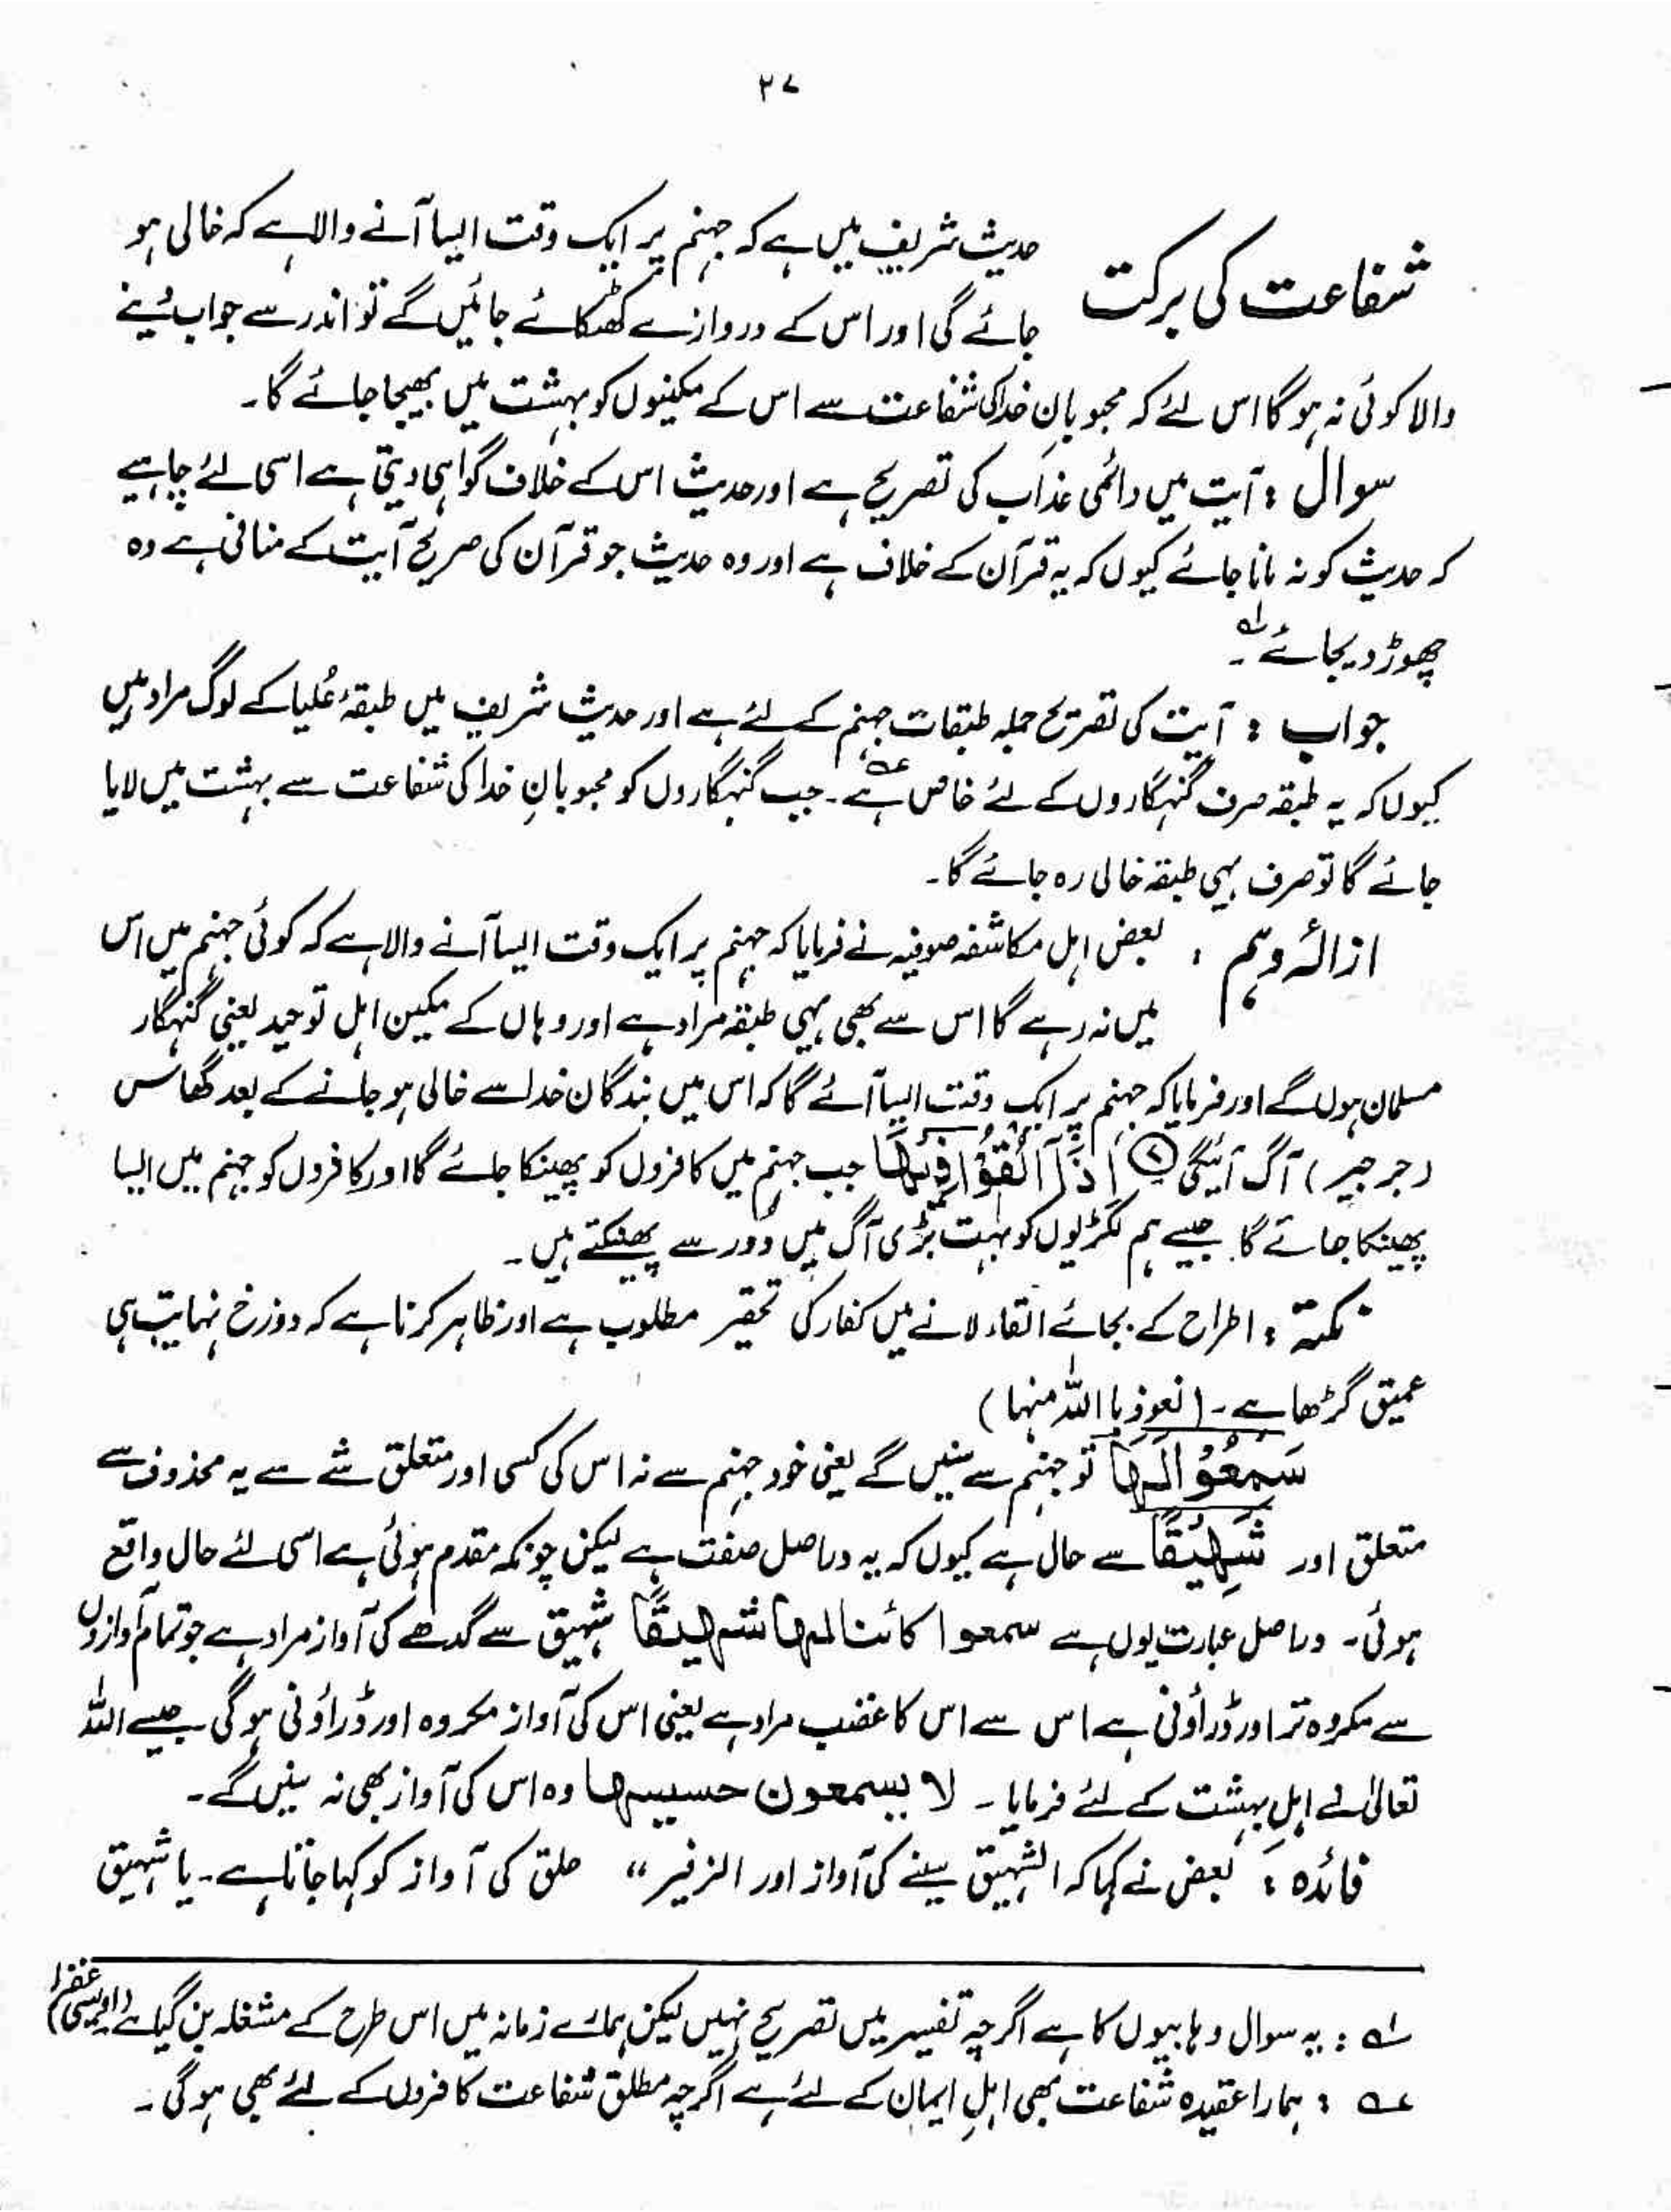 ۲۷
شفاعت کی برکت
حدیث شریف میں ہے کہ جہنم پر ایک وقت ایسا آنے والا ہے کہ خالی ہو
جائے گی اور اس کے دروازے کھٹکائے جائیں گے تو اندر سے جواب دینے
والا کوئی نہ ہو گا اس لئے کہ محبوبانِ خدا کی شفاعت سے اس کے مکینوں کو بہشت میں بھیجا جائے گا۔
سوال : آیت میں دائمی عذاب کی تصریح ہے اور حدیث اس کے خلاف گواہی دیتی ہے اسی لئے چاہیے
کہ حدیث کو نہ مانا جائے کیوں کہ یہ قرآن کے خلاف ہے اور وہ حدیث جو قرآن کی صریح آیت کے منافی ہے وہ
چھوڑ دیجائے ؎۱۔
جواب : آیت کی تصریح جملہ طبقات جہنم کے لئے ہے اور حدیث شریف میں طبقۂ عُلیا کے لوگ مراد ہیں
کیوں کہ یہ طبقہ صرف گنہگاروں کے لئے خاص ہے ؎۲۔ جب گنہگاروں کو محبوبانِ خدا کی شفاعت سے بہشت میں لایا
جائے گا تو صرف یہی طبقہ خالی رہ جائے گا۔
ازالۂ وہم : بعض اہل مکاشفہ صوفیہ نے فرمایا کہ جہنم پر ایک وقت ایسا آنے والا ہے کہ کوئی جہنم میں اس
میں نہ رہے گا اس سے بھی یہی طبقہ مراد ہے اور وہاں کے مکین اہل توحید یعنی گنہگار
مسلمان ہوں گے اور فرمایا کہ جہنم پر ایک وقت ایسا آئے گا کہ اس میں بندگان خدا سے خالی ہو جانے کے بعد گھاس
(جرجیر) آگ آئیگی ۲ اِذَآ اُلْقُوْا فِيْهَا جب جہنم میں کافروں کو پھینکا جائے گا اور کافروں کو جہنم میں ایسا
پھینکا جائے گا جیسے ہم لکڑیوں کو بہت بڑی آگ میں دور سے پھینکتے ہیں۔
نکتہ : اطراح کے بجائے القاء لانے میں کفار کی تحقیر مطلوب ہے اور ظاہر کرنا ہے کہ دوزخ نہایت ہی
عمیق گڑھا ہے۔ (نعوذ با اللہ منہا)
سَمِعُوْا لَهَا تو جہنم سے سنیں گے یعنی خود جہنم سے نہ اس کی کسی اور متعلق شے سے یہ محذوف سے
متعلق اور شَهِيْقًا سے حال ہے کیوں کہ یہ دراصل صفت ہے لیکن چونکہ مقدم ہوئی ہے اسی لئے حال واقع
ہوئی۔ دراصل عبارت یوں ہے سمعوا کائنا لها شهيقًا شہیق سے گدھے کی آواز مراد ہے جو تمام آوازوں
سے مکروہ تر اور ڈراؤنی ہے اس سے اس کا غضب مراد ہے یعنی اس کی آواز مکروہ اور ڈراؤنی ہو گی جیسے اللہ
تعالیٰ نے اہلِ بہشت کے لئے فرمایا۔ لا یسمعون حسیسها وہ اس کی آواز بھی نہ سنیں گے۔
فائدہ : بعض نے کہا کہ الشہیق سینے کی آواز اور الزفیر ،، حلق کی آواز کو کہا جاتا ہے۔ یا شہیق
؎۱ : یہ سوال وہابیوں کا ہے اگرچہ تفسیر میں تصریح نہیں لیکن ہمارے زمانہ میں اس طرح کے مشغلہ بن گیا ہے (اویسی غفرلہ)
؎۲ : ہمارا عقیدہ شفاعت بھی اہلِ ایمان کے لئے ہے اگرچہ مطلق شفاعت کافروں کے لئے بھی ہو گی۔